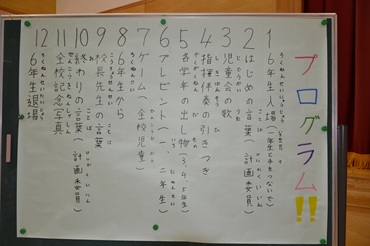 プログラム!!
1 6年生入場(一年生と手をつないで)
2 はじめの言葉(計画委員)
3 児童会の歌
4 指揮伴奏の引きつぎ
5 各学年の出し物(3、4、5年生)
6 プレゼント(一、二年生)
7 ゲーム(全校児童)
8 6年生から
9 校長先生の言葉
10 終わりの言葉(計画委員)
11 全校記念写真
12 6年生退場